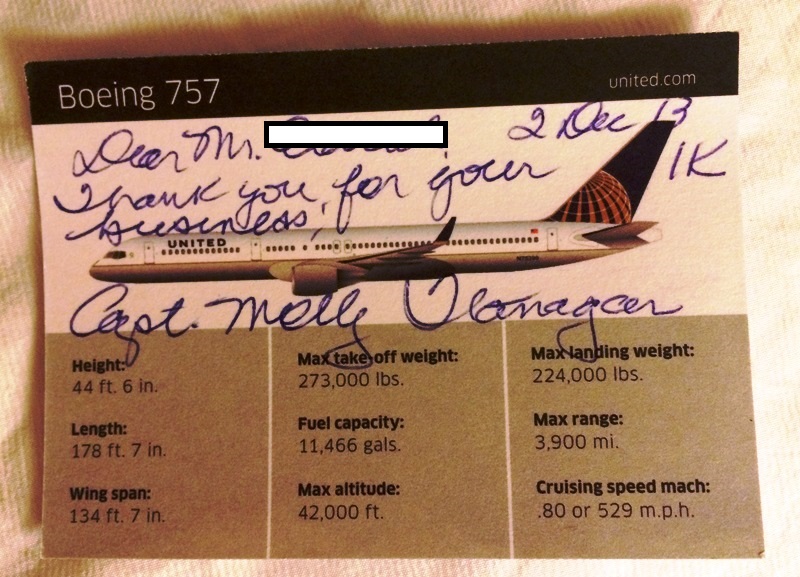 Boeing 757
united.com
Dear Mr. 2 Dec 13
Thank you for your 1K
business!
UNITED
Capt. Molly Flanagan
Height:
44 ft. 6 in.
Length:
178 ft. 7 in.
Wing span:
134 ft. 7 in.
Max take-off weight:
273,000 lbs.
Fuel capacity:
11,466 gals.
Max altitude:
42,000 ft.
Max landing weight:
224,000 lbs.
Max range:
3,900 mi.
Cruising speed mach:
.80 or 529 m.p.h.